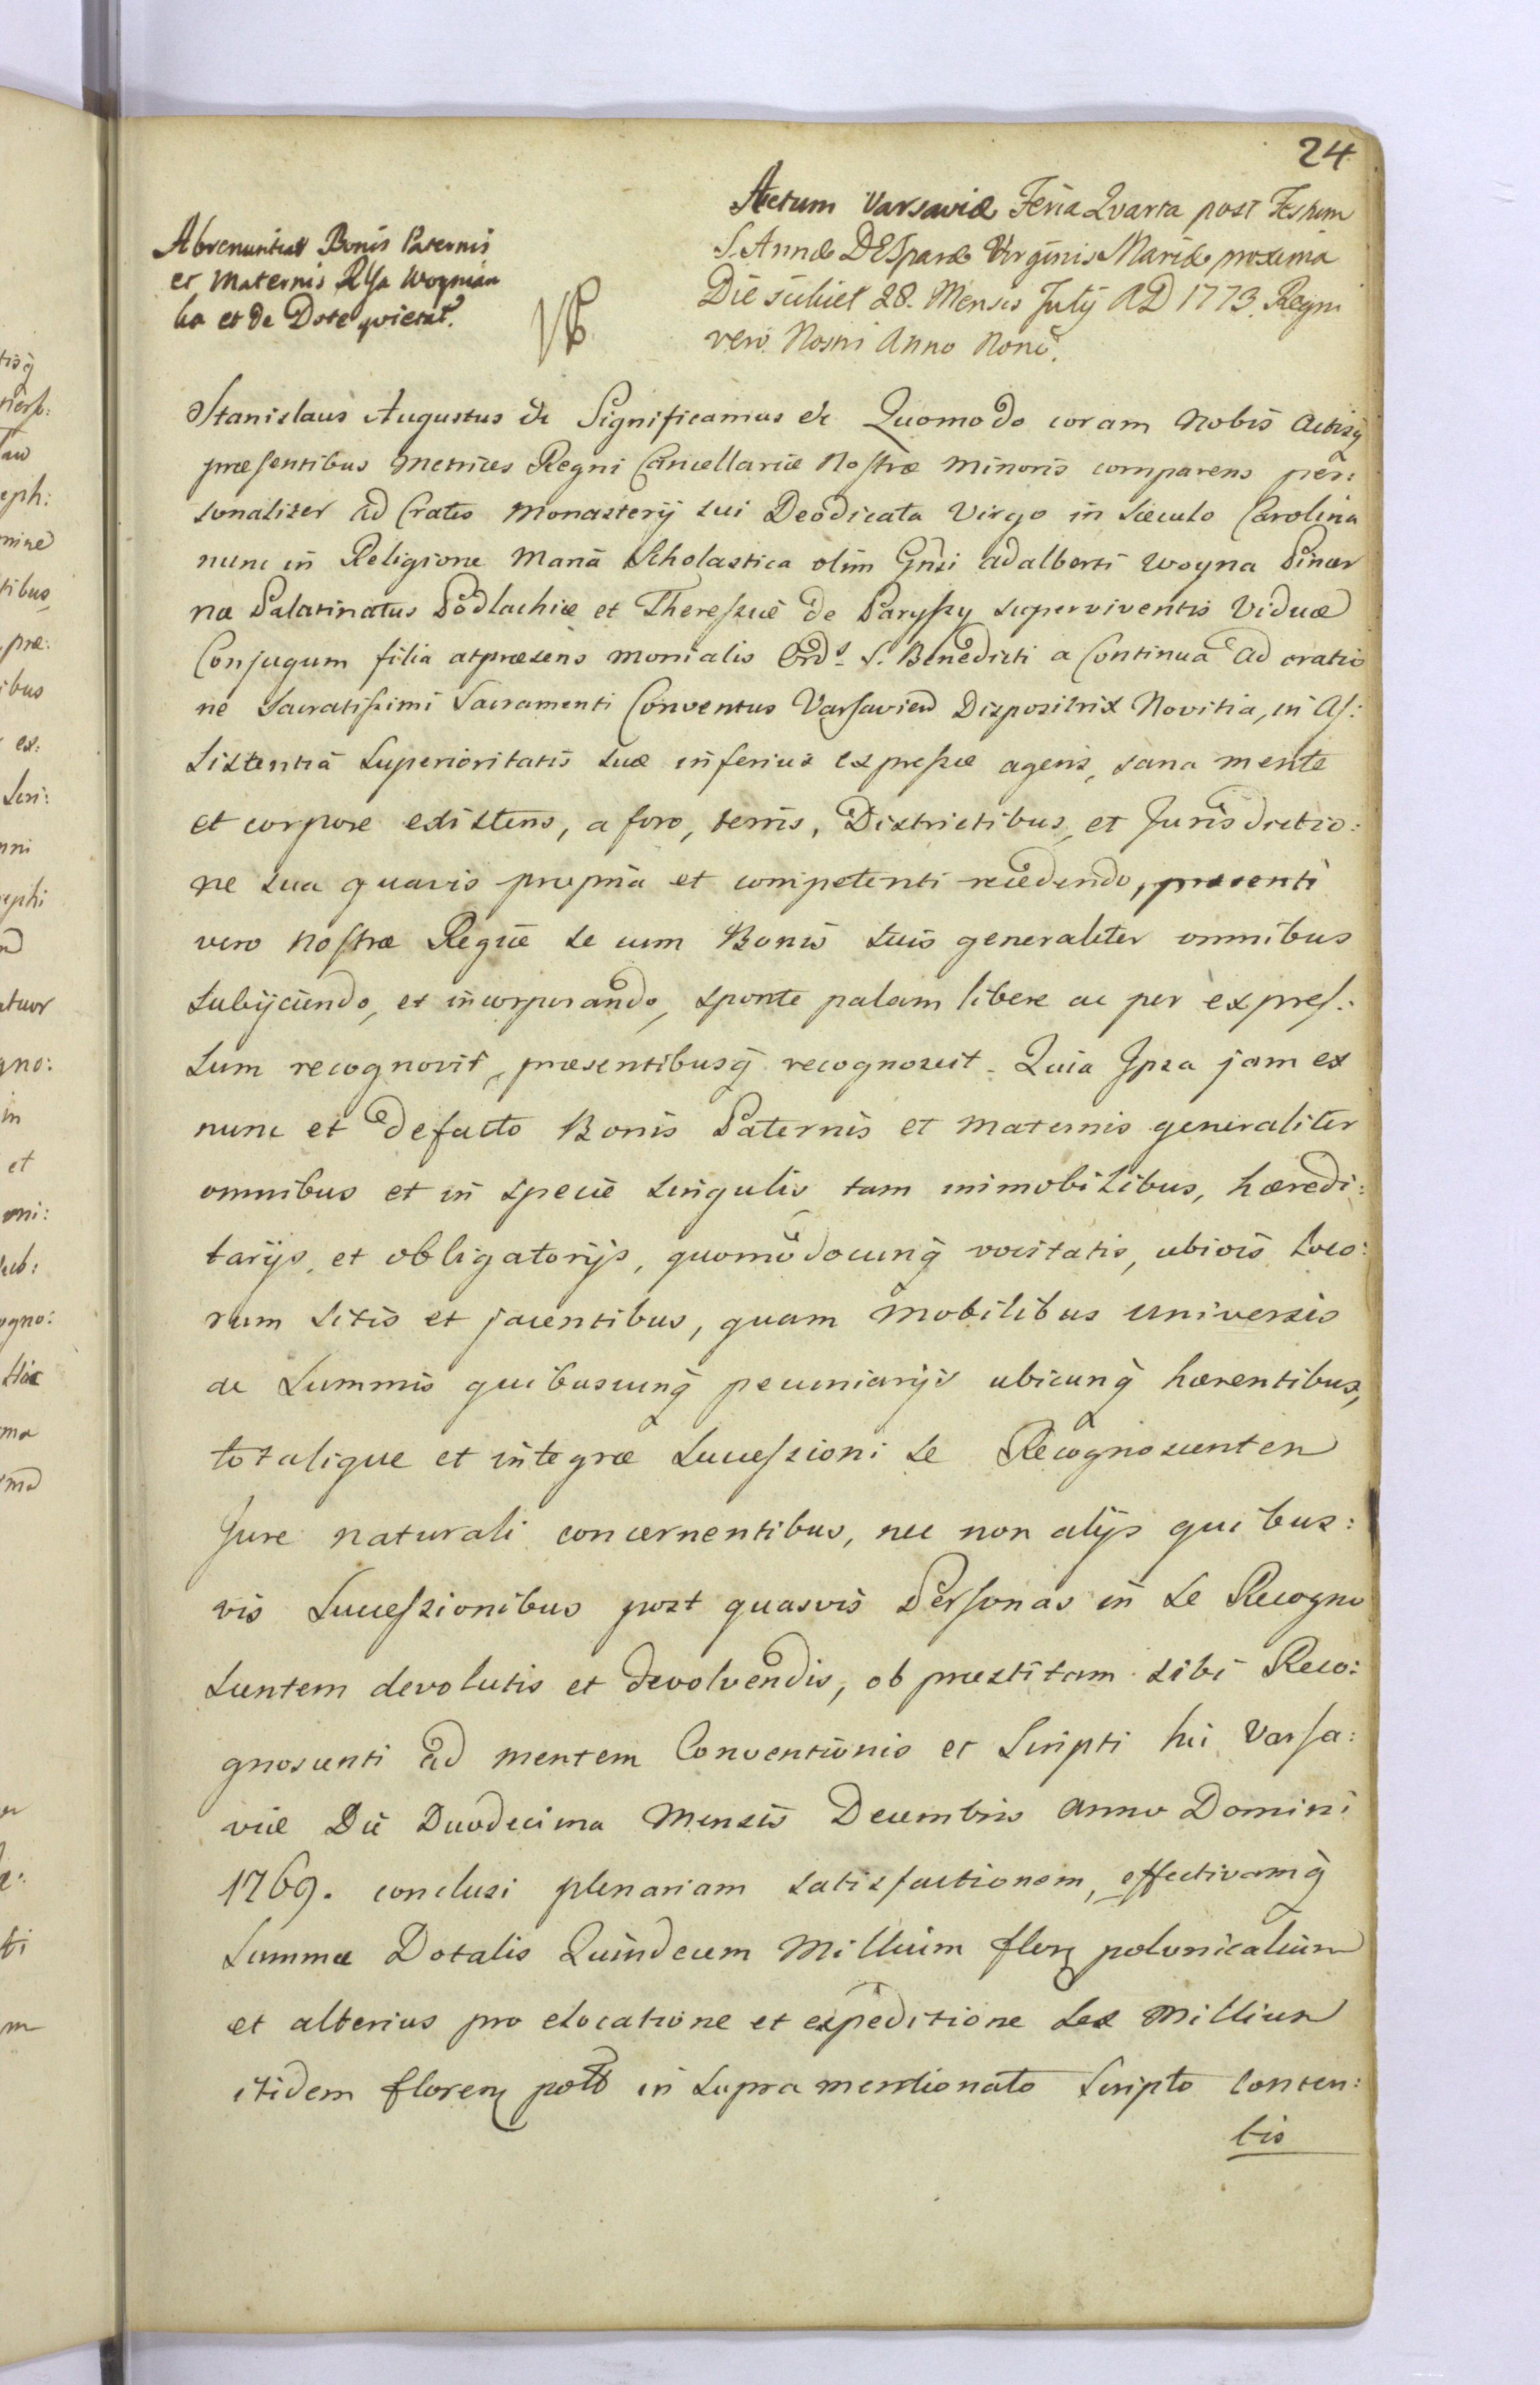 24
Actum Varsaviæ Feria Quarta post Festum
S. Annæ DEIparæ Virginis Mariæ proxima
Die scilicet 28. Mensis July AD 1773. Regni
vero Nostri Anno Nono.
Abrenuntiat Bonis Paternis
et Maternis Rlsa Woynian
ka et de Dote quietat.
Stanislaus Augustus &c Significamus &c Quomodo coram Nobis Actisq
præsentibus Metrices Regni Cancellariæ Nostræ Minoris comparens per:
sonaliter ad Crates Monasterij sui Deodicata Virgo in Sæculo Carolina
nunc in Religione Maria Scholastica olim Gnsi Adalberti Woyna Pincer
næ Palatinatus Podlachiæ et Theressiæ de Paryssy superviventis Viduæ
Conjugum filia atpræsens Monialis Ords S. Benedicti a Continua Adoratio
ne Sacratissimi Sacramenti Conventus Varsavien Dispositrix Novitia, in As:
sistentia Superioritatis suæ inferius expressæ agens, sana mente
et corpore existens, a foro, terris, Districtibus, et Jurisdictio:
ne sua quavis propria et competenti recedendo, præsenti
vero Nostræ Regiæ se cum Bonis suis generaliter omnibus
subijciendo, et incorporando, sponte palam libere ac per expres:
sum recognovit, præsentibusq recognoscit. Quia Ipsa jam ex
nunc et defacto Bonis Paternis et Maternis generaliter
omnibus et in specie singulis tam immobilibus, hæredi:
tarijs, et obligatorijs, quomodocunq vocitatis, ubivis loco:
rum sitis et jacentibus, quam Mobilibus universis
ac Summis quibuscunq pecuniarijs ubicunq hærentibus,
totalique et integræ Successioni se Recognoscenten
Jure naturali concernentibus, nec non alijs quibus:
vis Successionibus post quasvis Personas in se Recogno
scentem devolutis et devolvendis, ob præstitam sibi Reco:
gnoscenti ad mentem Conventionis et Scripti hic Varsa:
viæ Die Duodecima Mensis Decembris Anno Domini
1769. conclusi plenariam satisfactionem, effectivamq
Summæ Dotalis Quindecem Millium flor polonicalium
et alterius pro elocatione et expeditione Sex Millium
itidem floren pol in supra mentionato Scripto conten:
tis